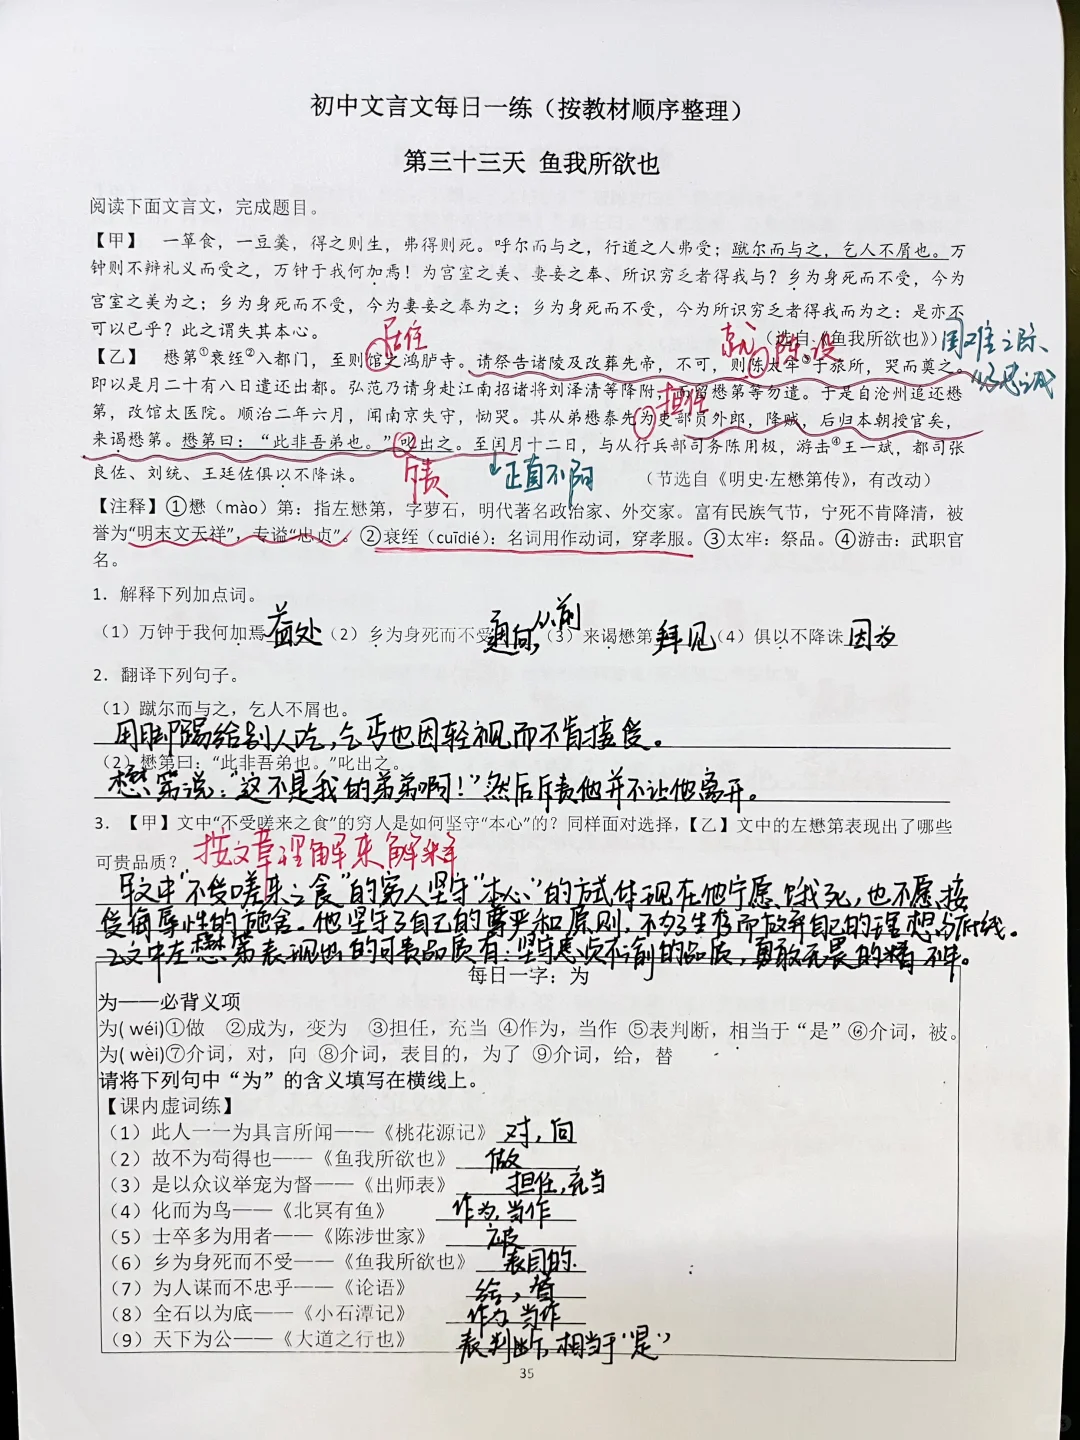 初中文言文每日一练（按教材顺序整理）
第三十三天 鱼我所欲也
阅读下面文言文，完成题目。
【甲】 一箪食，一豆羹，得之则生，弗得则死。呼尔而与之，行道之人弗受；蹴尔而与之，乞人不屑也。万
钟则不辩礼义而受之，万钟于我何加焉！为宫室之美、妻妾之奉、所识穷乏者得我与？乡为身死而不受，今为
宫室之美为之；乡为身死而不受，今为妻妾之奉为之；乡为身死而不受，今为所识穷乏者得我而为之：是亦不
可以已乎？此之谓失其本心。
（选自《鱼我所欲也》）
居住
就
陈设
困难之际、
【乙】 懋第①衰绖②入都门，至则馆之鸿胪寺。请祭告诸陵及改葬先帝，不可，则陈太牢③于旅所，哭而奠之。
即以是月二十有八日遣还出都。弘范乃请身赴江南招诸将刘泽清等降附，而留懋第等勿遣。于是自沧州追还懋
担任
第，改馆太医院。顺治二年六月，闻南京失守，恸哭。其从弟懋泰先为吏部员外郎，降贼，后归本朝授官矣，
来谒懋第。懋第曰：“此非吾弟也。”叱出之。至闰月十二日，与从行兵部司务陈用极，游击④王一斌，都司张
良佐、刘统、王廷佐俱以不降诛。
斥责
正直不阿
（节选自《明史·左懋第传》，有改动）
【注释】①懋（mào）第：指左懋第，字萝石，明代著名政治家、外交家。富有民族气节，宁死不肯降清，被
誉为“明末文天祥”，专谥“忠贞”。②衰绖（cuīdié）：名词用作动词，穿孝服。③太牢：祭品。④游击：武职官
名。
1．解释下列加点词。
（1）万钟于我何加焉 益处 （2）乡为身死而不受 通向，从前 （3）来谒懋第 拜见 （4）俱以不降诛 因为
2．翻译下列句子。
（1）蹴尔而与之，乞人不屑也。
用脚踢给别人吃，乞丐也因轻视而不肯接受。
（2）懋第曰：“此非吾弟也。”叱出之。
懋第说：“这不是我的弟弟啊！”然后斥责他并不让他离开。
3．【甲】文中“不受嗟来之食”的穷人是如何坚守“本心”的？同样面对选择，【乙】文中的左懋第表现出了哪些
可贵品质？
按文章理解来解释
甲文中“不受嗟来之食”的穷人坚守“本心”的方式体现在他宁愿饿死，也不愿接
受侮辱性的施舍。他坚守了自己的尊严和原则，不为了生存而放弃自己的理想与底线。
乙文中左懋第表现出的可贵品质有：坚守忠贞不渝的品质，勇敢无畏的精神。
每日一字：为
为——必背义项
为( wéi)①做 ②成为，变为 ③担任，充当 ④作为，当作 ⑤表判断，相当于“是”⑥介词，被。
为( wèi)⑦介词，对，向 ⑧介词，表目的，为了 ⑨介词，给，替
请将下列句中“为”的含义填写在横线上。
【课内虚词练】
（1）此人一一为具言所闻——《桃花源记》 对，向
（2）故不为苟得也——《鱼我所欲也》 做
（3）是以众议举宠为督——《出师表》 担任，充当
（4）化而为鸟——《北冥有鱼》 作为，当作
（5）士卒多为用者——《陈涉世家》 被
（6）乡为身死而不受——《鱼我所欲也》 表目的.
（7）为人谋而不忠乎——《论语》 给，替
（8）全石以为底——《小石潭记》 作为，当作
（9）天下为公——《大道之行也》 表判断，相当于“是”
35